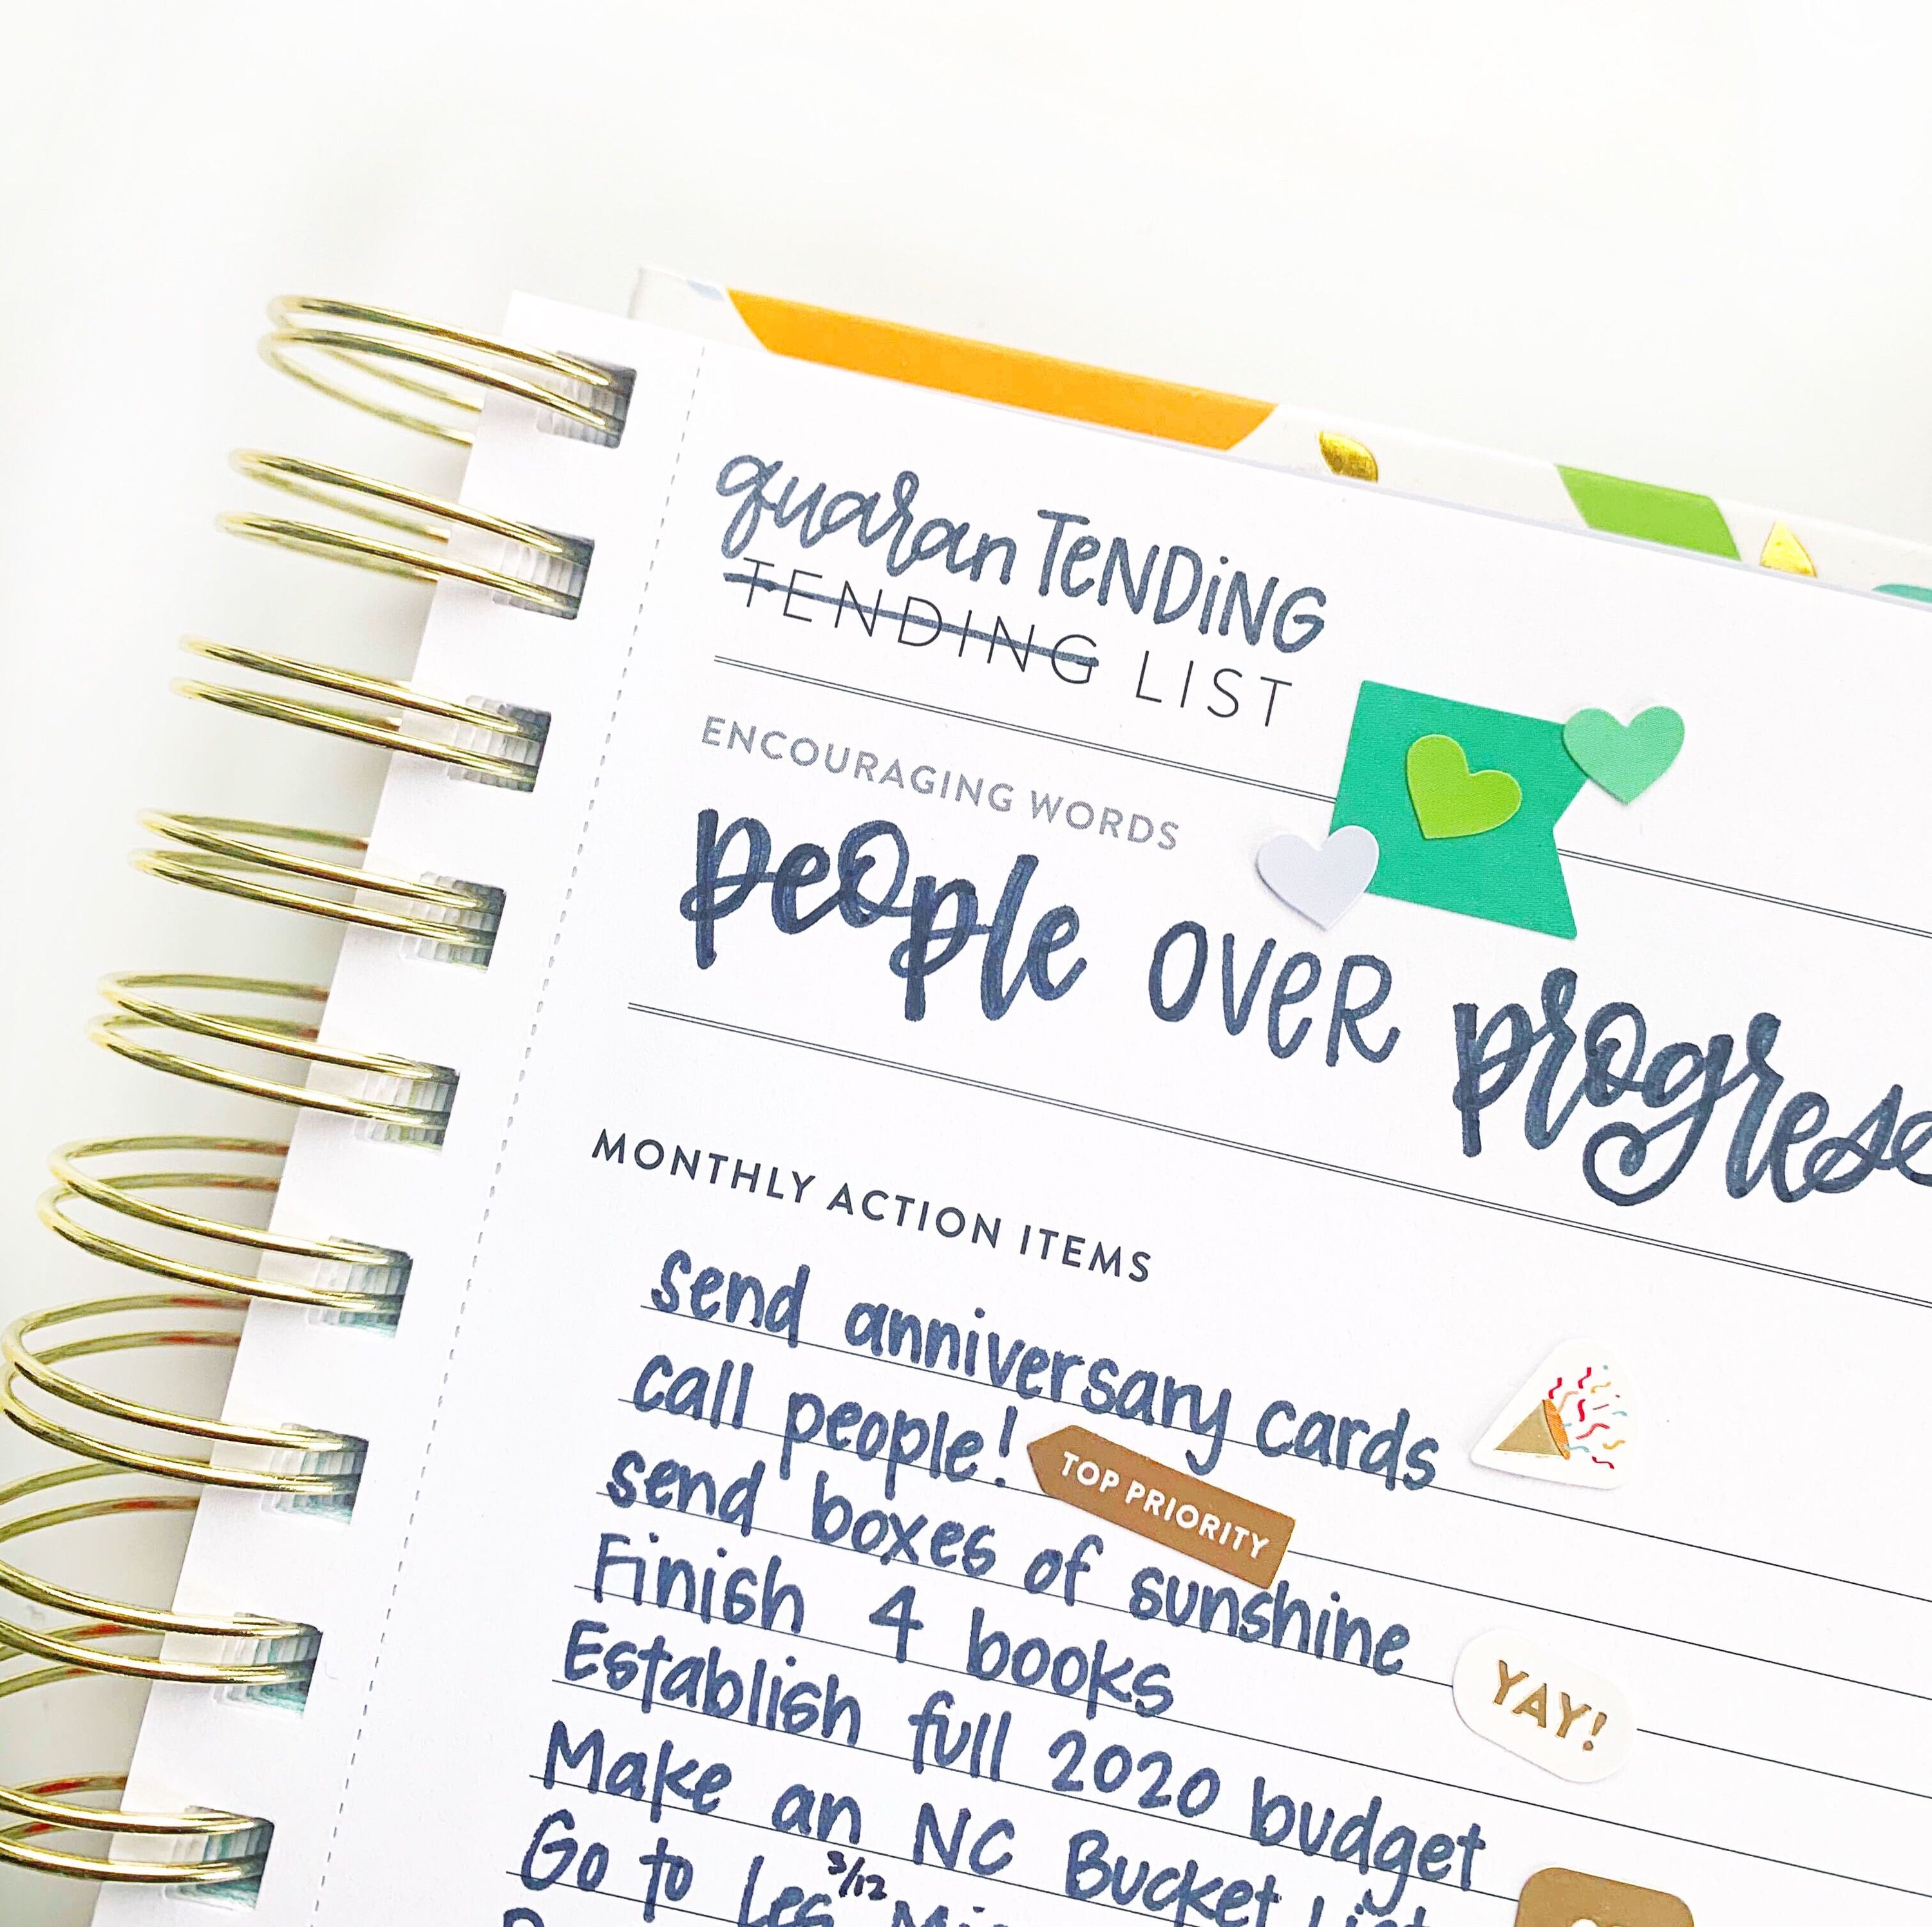 quaranTeNDiNG
TENDING LIST
ENCOURAGING WORDS
people oVeR progress
MONTHLY ACTION ITEMS
send anniversary cards
call people! TOP PRIORITY
send boxes of sunshine
Finish 4 books YAY!
Establish full 2020 budget
Make an NC Bucket List
3/12
Go to Les